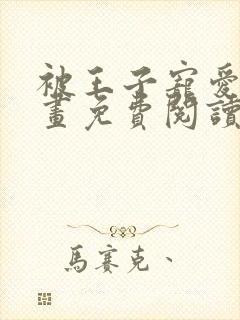 被王子寵愛
畫免費閱讀
馬賽克、